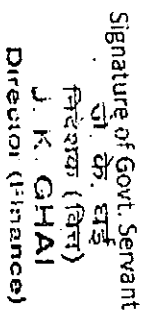 Signature of Govt. Servant
जे. के. घई
निदेशक (वित्त)
J. K. GHAI
Director (Finance)